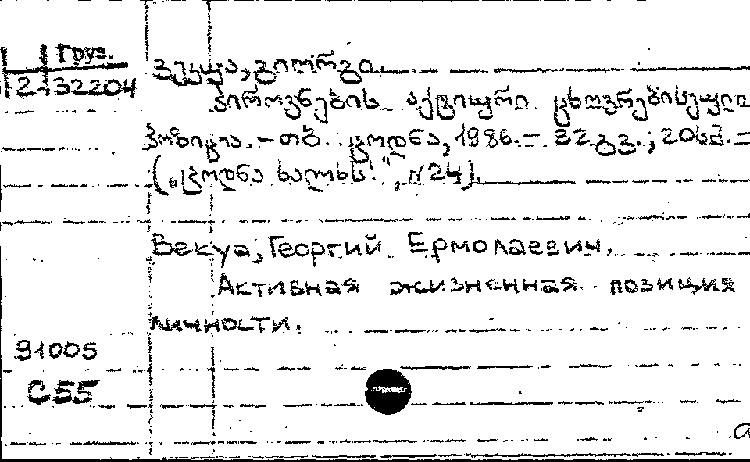 Груз.
2-32204
ვეკუა, გიორგი.
პიროვნების აქტიური ცხოვრებისეული
პოზიცია. - თბ. ცოდნა, 1986. - 32 გვ.; 20სმ. -
(„ცოდნა ხალხს!", №24).
Векуа, Георгий Ермолаевич.
Активная жизненная позиция
личности.
91005
С55